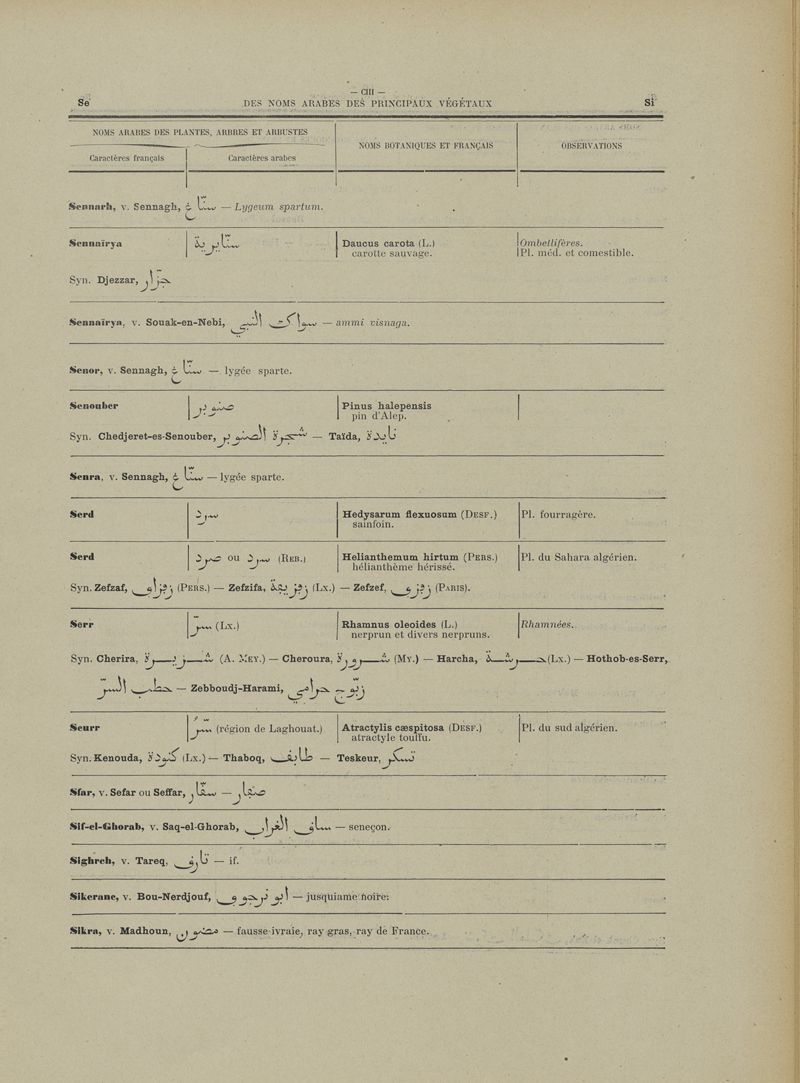 — CIII —
Se DES NOMS ARABES DES PRINCIPAUX VÉGÉTAUX Si
NOMS ARABES DES PLANTES, ARBRES ET ARBUSTES
NOMS BOTANIQUES ET FRANÇAIS
OBSERVATIONS
Caractères français
Caractères arabes
Sennarh, v. Sennagh, سنّاغ — Lygeum spartum.
Sennaïrya سنّايرية Daucus carota (L.) Ombellifères.
carotte sauvage. Pl. méd. et comestible.
Syn. Djezzar, جزّار
Sennaïrya, v. Souak-en-Nebi, سواك النبي — ammi visnaga.
Senor, v. Sennagh, سنّاغ — lygée sparte.
Senouber صنوبر Pinus halepensis
pin d'Alep.
Syn. Chedjeret-es-Senouber, شجرة الصنوبر — Taïda, تايدة
Senra, v. Sennagh, سنّاغ — lygée sparte.
Serd سرد Hedysarum flexuosum (DESF.) Pl. fourragère.
sainfoin.
Serd سرد ou صرد (REB.) Helianthemum hirtum (PERS.) Pl. du Sahara algérien.
hélianthème hérissé.
Syn. Zefzaf, زفزاف (PERS.) — Zefzifa, زفزيفة (LX.) — Zefzef, زفزف (PARIS).
Serr سرّ (LX.) Rhamnus oleoides (L.) Rhamnées.
nerprun et divers nerpruns.
Syn. Cherira, شريرة (A. MEY.) — Cheroura, شرورة (MY.) — Harcha, حرشة (LX.) — Hothob-es-Serr,
حطب السرّ — Zebboudj-Harami, زبّوج حرامي
Seurr سرّ (région de Laghouat.) Atractylis cæspitosa (DESF.) Pl. du sud algérien.
atractyle touffu.
Syn. Kenouda, كنودة (LX.) — Thaboq, طابق — Teskeur, تسكر
Sfar, v. Sefar ou Seffar, سفّار — صفار
Sif-el-Ghorab, v. Saq-el-Ghorab, ساق الغراب — seneçon.
Sighreh, v. Tareq, تارق — if.
Sikerane, v. Bou-Nerdjouf, أبو نرجوف — jusquiame noire.
Sikra, v. Madhoun, مضون — fausse ivraie, ray gras, ray de France.